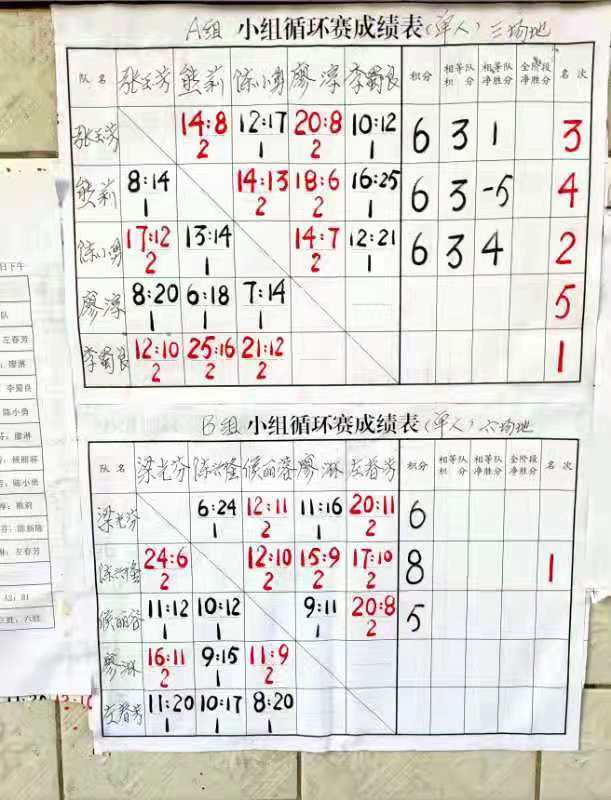 A组 小组循环赛成绩表(单人) 三场地
队 名 张玉芳 熊莉 陈小勇 廖淳 李蜀良 积分 相等队积 分 相等队净胜分 全阶段净胜分 名 次
张玉芳 14:8 12:17 20:8 10:12 6 3 1 3
2 1 2 1
熊莉 8:14 14:13 18:6 16:25 6 3 -5 4
1 2 2 1
陈小勇 17:12 13:14 14:7 12:21 6 3 4 2
2 1 2 1
廖淳 8:20 6:18 7:14 5
1 1 1
李蜀良 12:10 25:16 21:12 1
2 2 2
B组 小组循环赛成绩表(单人) 六场地
队 名 梁光芬 陈兴隆 侯丽蓉 廖淋 左春芳 积分 相等队积 分 相等队净胜分 全阶段净胜分 名 次
梁光芬 6:24 12:11 11:16 20:11 6
1 2 1 2
陈兴隆 24:6 12:10 15:9 17:10 8 1
2 2 2 2
侯丽蓉 11:12 10:12 9:11 20:8 5
1 1 1 2
廖淋 16:11 9:15 11:9
2 1 2
左春芳 11:20 10:17 8:20
1 1 1
日下午
队
左春芳
廖淋
李蜀良
陈小勇
廖淋
侯丽蓉
陈小勇
熊莉
左春芳